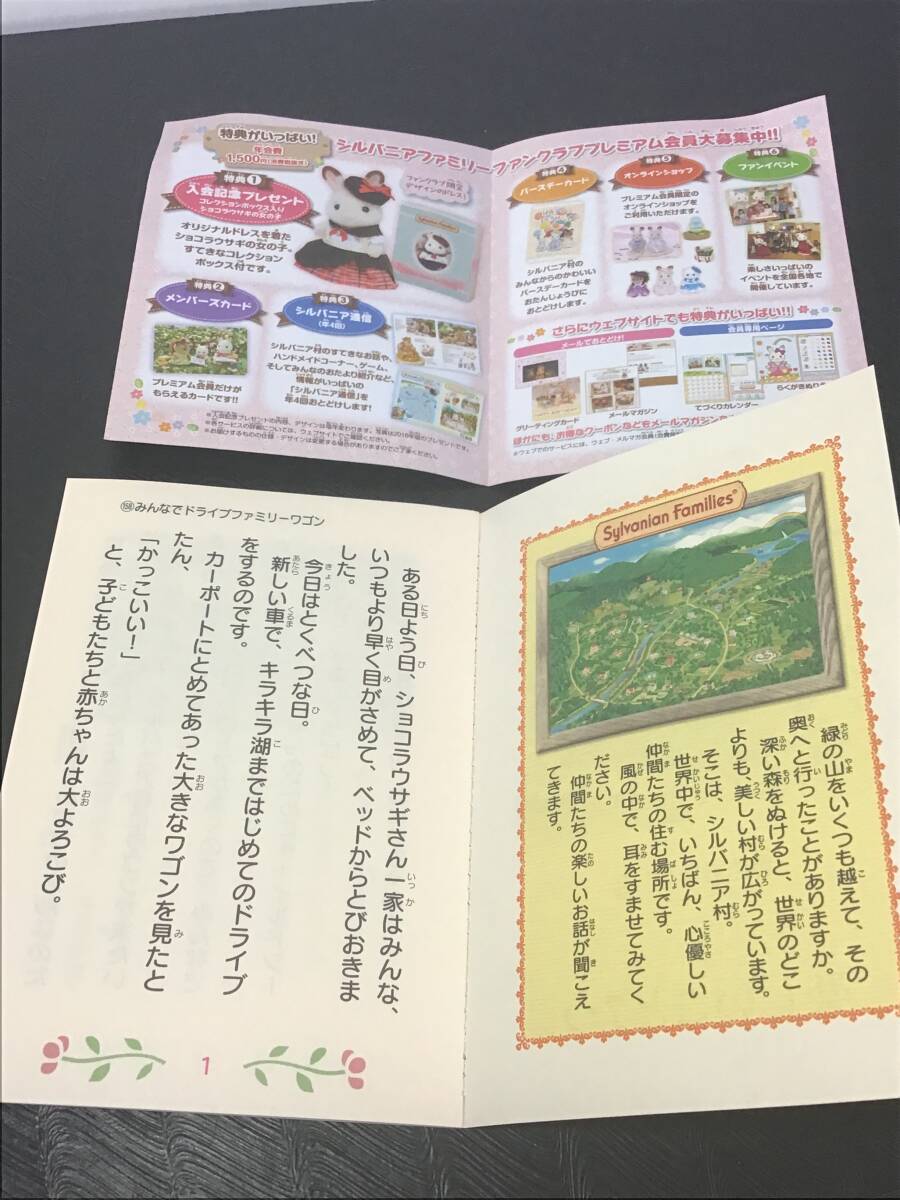 特典がいっぱい!
年会費
1,500円(消費税抜き)
シルバニアファミリーファンクラブプレミアム会員大募集中!!
特典1
入会記念プレゼント
コレクションボックス入り
ショコラウサギの女の子
オリジナルドレスを着た
ショコラウサギの女の子。
すてきなコレクション
ボックス付です。
ファンクラブ限定
デザインのドレス!
Sylvanian Families
特典2
メンバーズカード
プレミアム会員だけが
もらえるカードです!!
特典3
シルバニア通信
(年4回)
シルバニア村のすてきなお話や、
ハンドメイドコーナー、ゲーム、
そしてみんなのおたより紹介など、
情報がいっぱいの
「シルバニア通信」を
年4回おとどけします!
※入会記念プレゼントの内容、デザインは毎年変わります。写真は2016年度のプレゼントです。
※各サービスの詳細については、ウェブサイトでご確認ください。
※お届けするものの仕様・デザインは変更する場合がありますのでご了承ください。
特典4
バースデーカード
シルバニア村の
みんなからのかわいい
バースデーカードを
おたんじょうびに
おとどけします。
特典5
オンラインショップ
プレミアム会員限定の
オンラインショップを
ご利用いただけます。
特典6
ファンイベント
楽しさいっぱいの
イベントを全国各地で
開催しています。
さらにウェブサイトでも特典がいっぱい!!
メールでおとどけ!
会員専用ページ
グリーティングカード
メールマガジン
てづくりカレンダー
らくがきぬりえ
ほかにも、お得なクーポンなどもメールマガジンな
※ウェブでのサービスには、ウェブ・メルマガ会員(会費無
Sylvanian Families®
緑の山をいくつも越えて、その
奥へと行ったことがありますか。
深い森をぬけると、世界のどこ
よりも、美しい村が広がっています。
そこは、シルバニア村。
世界中で、いちばん、心優しい
仲間たちの住む場所です。
風の中で、耳をすませてみてく
ださい。
仲間たちの楽しいお話が聞こえ
てきます。
158みんなでドライブファミリーワゴン
ある日よう日、ショコラウサギさん一家はみんな、
いつもより早く目がさめて、ベッドからとびおきま
した。
今日はとくべつな日。
新しい車で、キラキラ湖まではじめてのドライブ
をするのです。
カーポートにとめてあった大きなワゴンを見たと
たん、
「かっこいい!」
と、子どもたちと赤ちゃんは大よろこび。
1